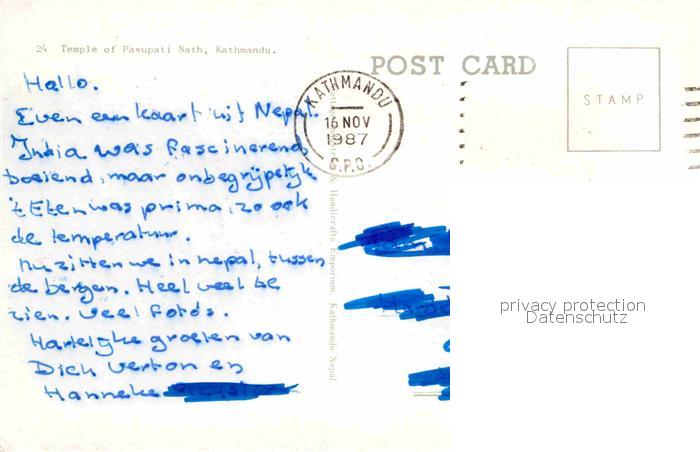 24 Temple of Pasupati Nath, Kathmandu.
POST CARD
STAMP
KATHMANDU
16 NOV
1987
G.P.O.
Hallo.
Even een kaart uit Nepal.
India was fascinerend,
boeiend, maar onbegrijpelijk
't Eten was prima, zo ook
de temperatuur.
nu zitten we in nepal, tussen
de bergen. Heel veel te
zien. veel foto's.
Hartelijke groeten van
Dick Verton en
Hanneke
& Handicrafts Emporium, Kathmandu Nepal
privacy protection
Datenschutz